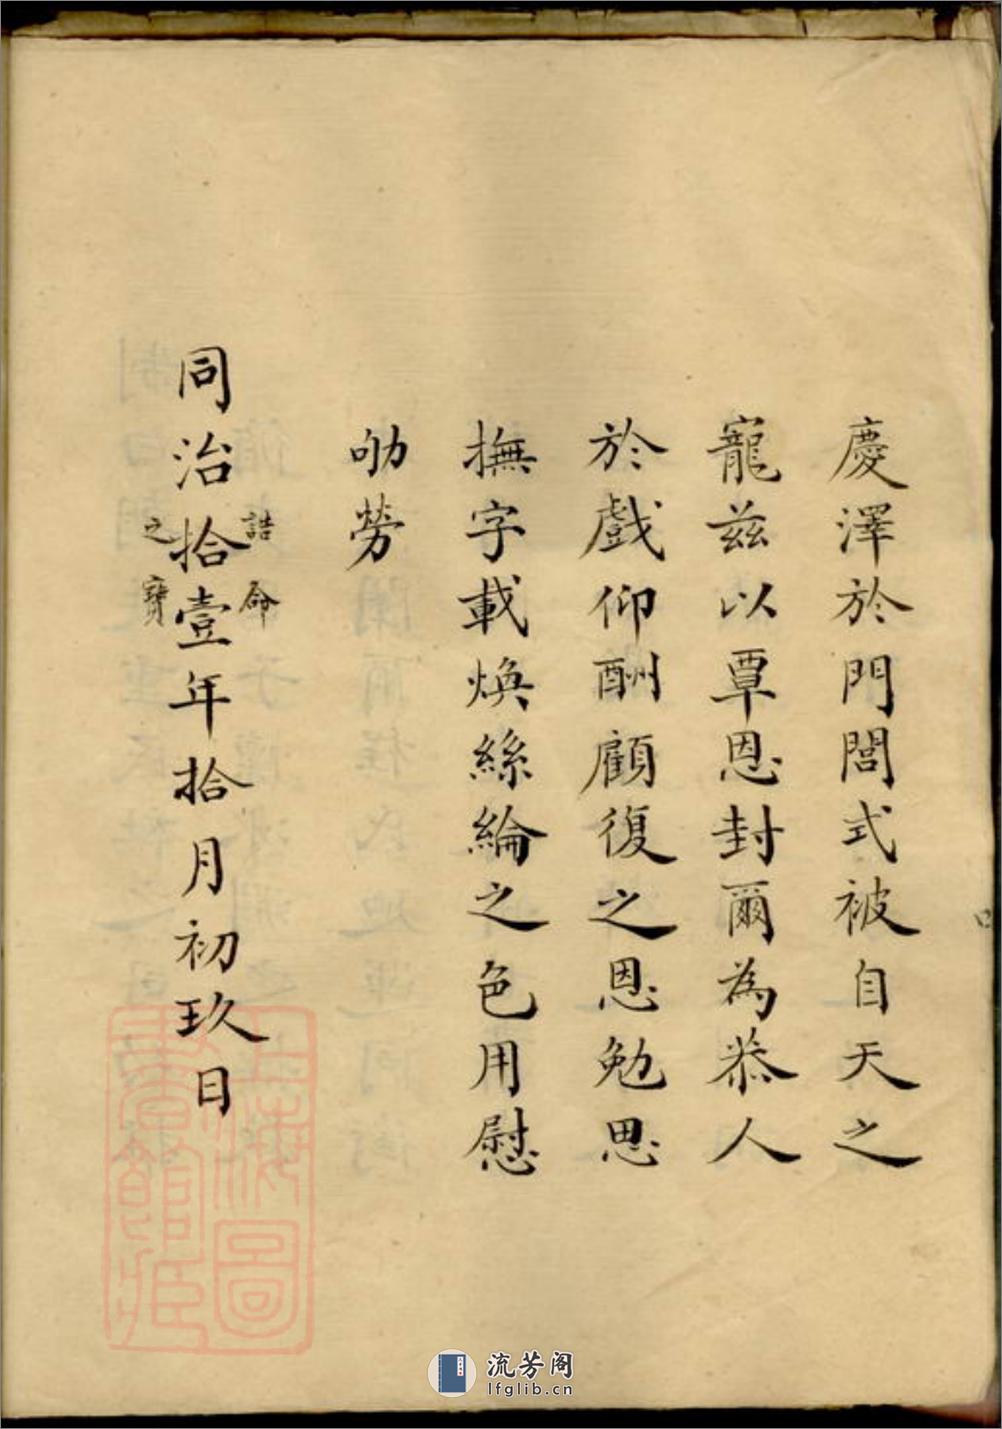 慶澤於門閭式被自天之
寵茲以覃恩封爾為恭人
於戲仰酬顧復之恩勉思
撫字載煥絲綸之色用慰
劬勞
同治拾壹年拾月初玖日
誥命
之寶
上海圖
書館藏
流芳阁
lfglib.cn